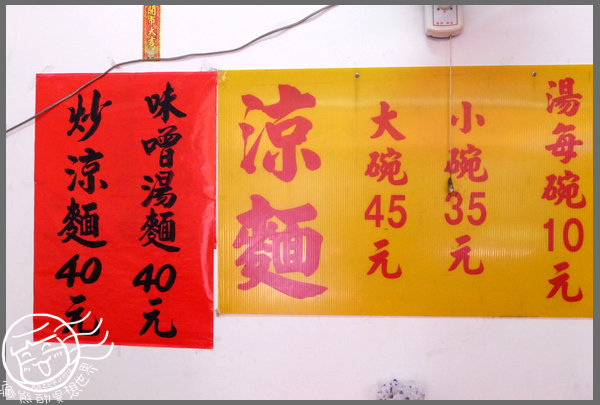 開市大吉
湯每碗10元
小碗35元
大碗45元
涼麵
味噌湯麵40元
炒涼麵40元